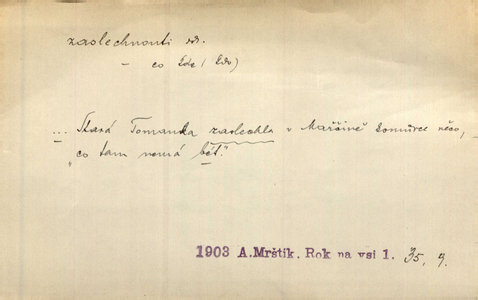 zaslechnouti dok.
– co kde (kdo)
... Stará Tomanka zaslechla v Mařčině komůrce něco,
"co tam nemá bét."
1903 A. Mrštík. Rok na vsi 1. 35, 9.